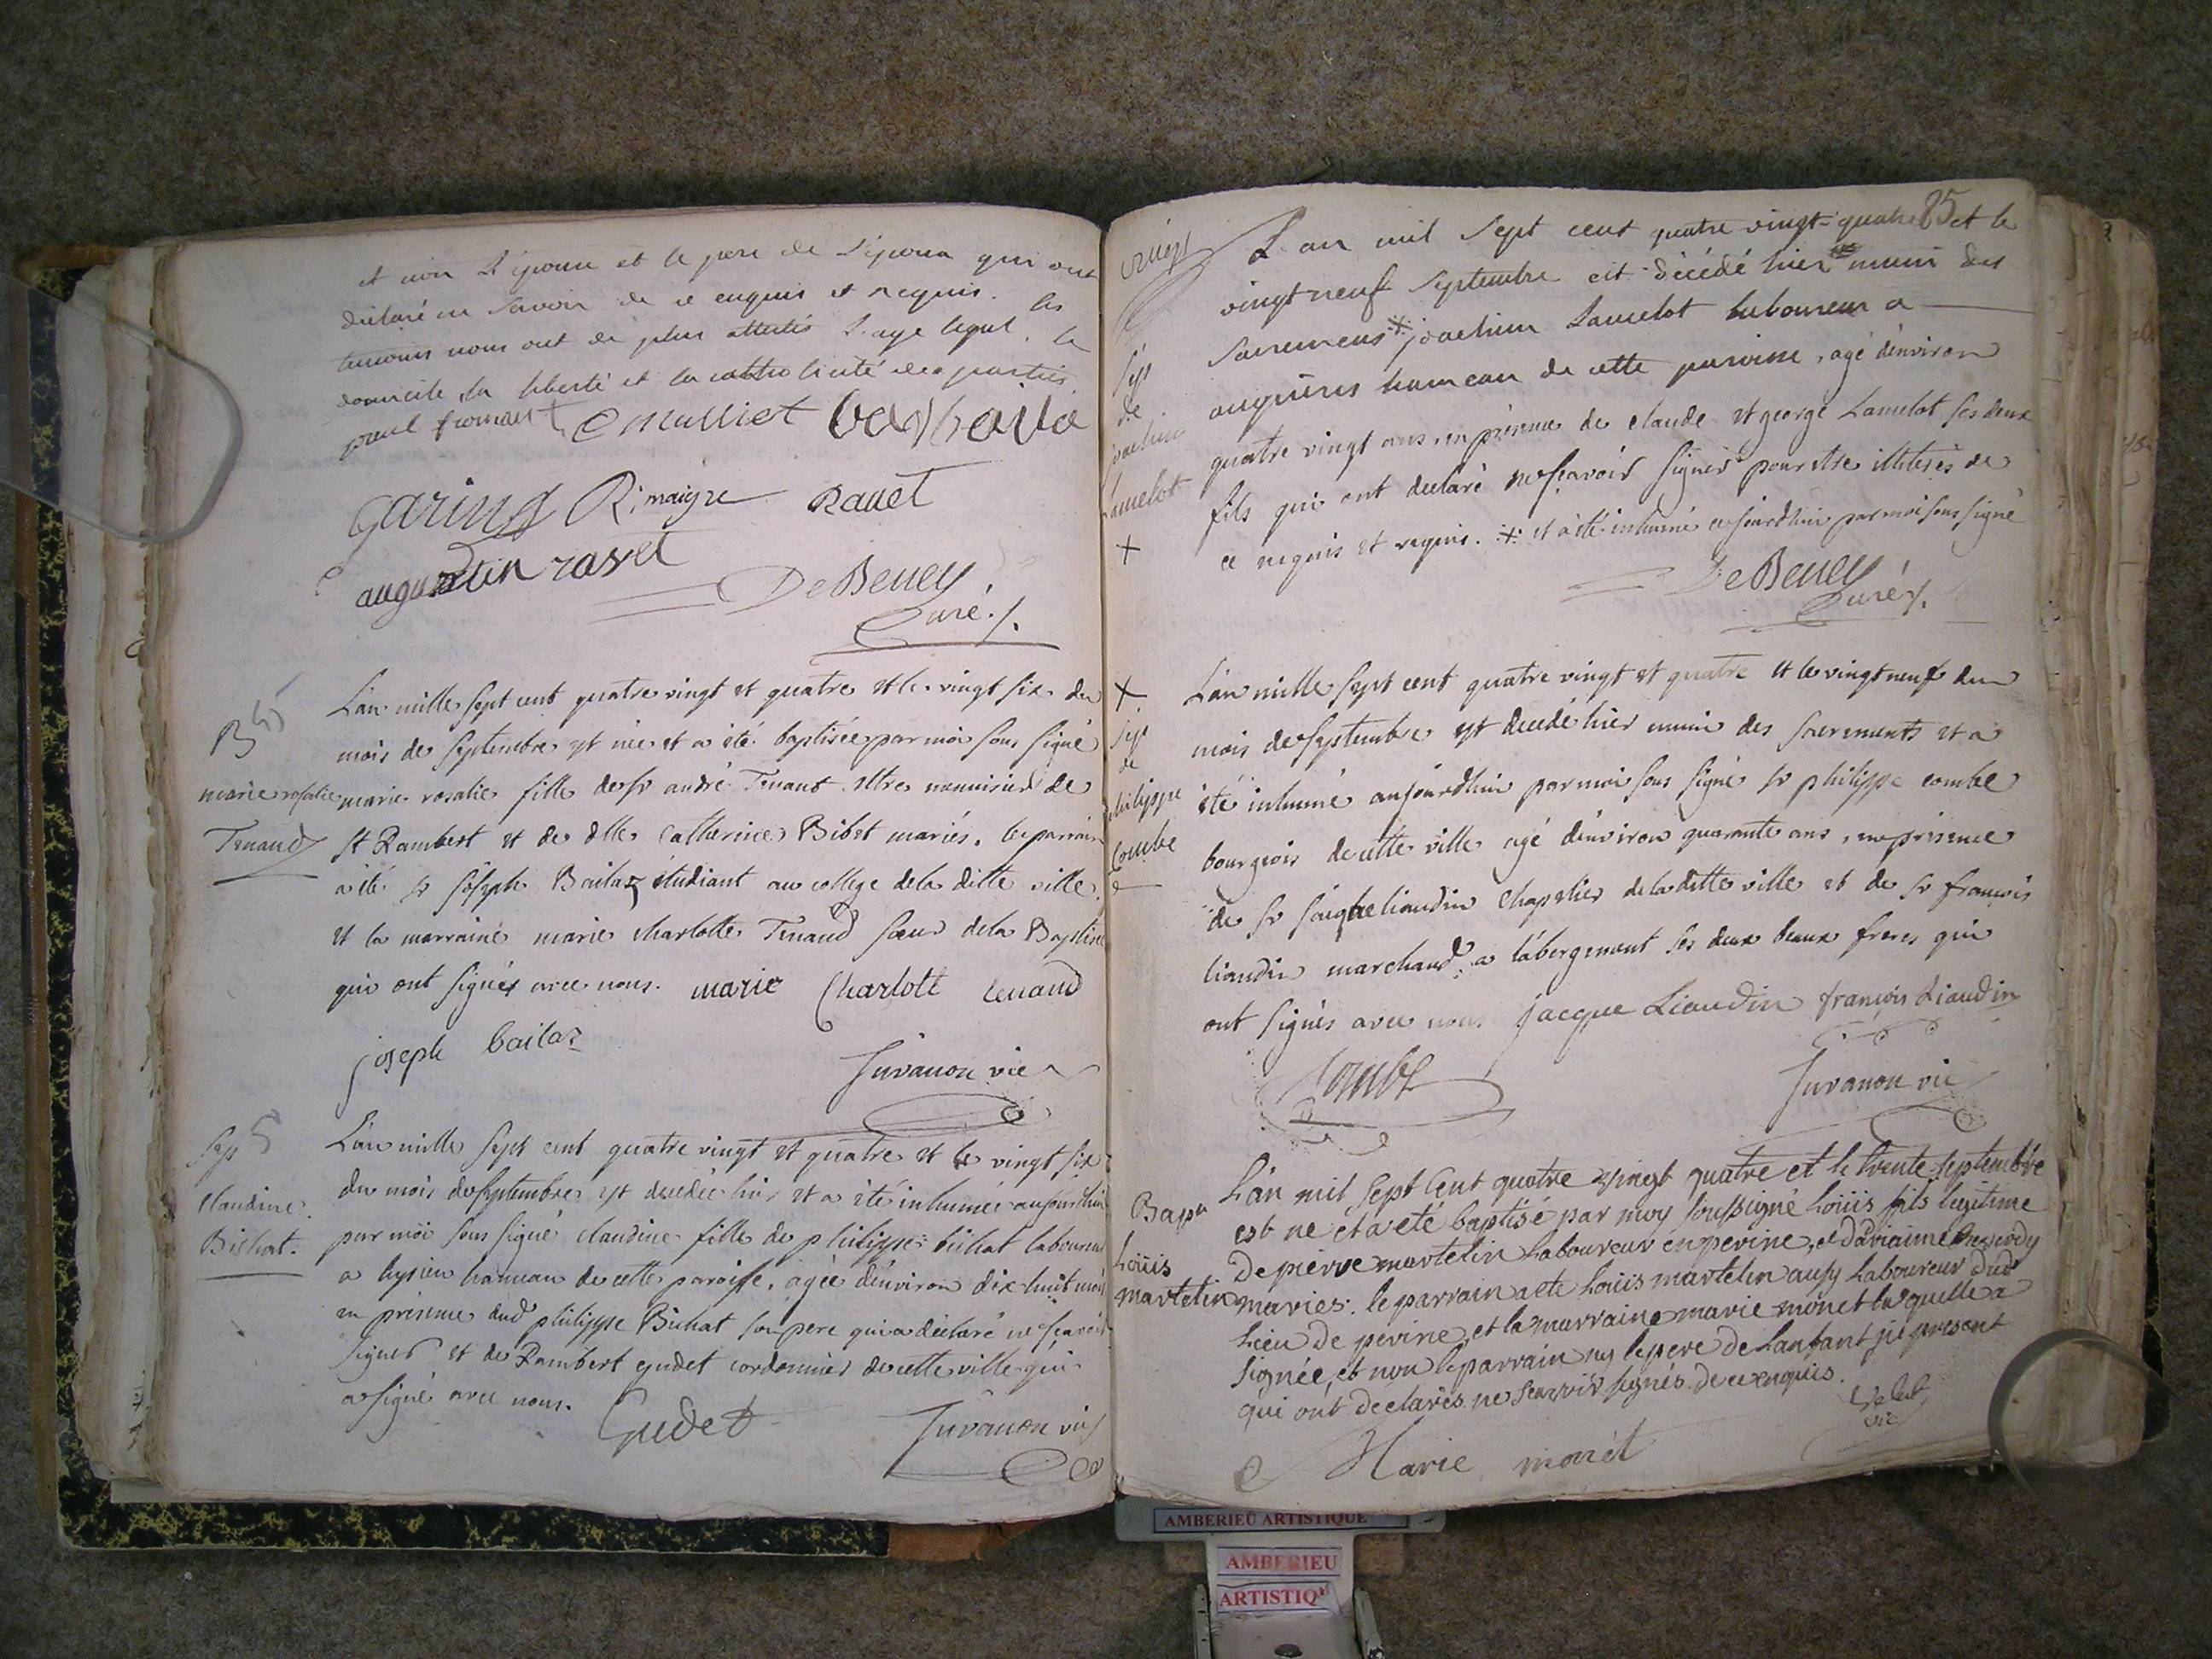 et non L'épouse et le pere de L'époux qui ont
déclaré ne Savoir de ce enquis et requis. les
temoins nous ont de plus attestés L'age legal, le
domicile, la liberté et la catholicité des parties
paul froment C mulliet barbarin
Garing R: maigre Ravet
augustin ravet
De Beney
Curé ./.
B
marie rosalie
Tenaud
L'an mille sept cent quatre vingt et quatre et le vingt six du
mois de septembre est née et a été baptisée par moi sous signé
marie rosalie fille de sr andré Tenaud me menuisier de
St Rambert et de dlle Catherine Bibet mariés. le parrain
a été sr joseph Bailaz étudiant au college de la ditte ville
et la marraine marie charlotte Tenaud sœur de la Baptisée
qui ont signés avec nous. marie Charlott tenaud
joseph bailaz
Juvanon vic
Sep
Claudine
Bichat.
L'an mille sept cent quatre vingt et quatre et le vingt six
du mois de septembre est decedée hier et a été inhumée aujourdhui
par moi sous signé claudine fille de philippe bichat laboureur
a lupieu hameau de cette paroisse, agée d'environ dix huit mois
en présence dud philippe Bichat son pere qui a déclaré ne sçavoir
signer et de Rambert gudet cordonnier de cette ville qui
a signé avec nous.
Gudet
Juvanon vic
85
L'an mil Sept cent quatre vingt-quatre et le
vingt neuf Septembre est décédé hier muni des
Sacremens * joachim Lancelot laboureur a
angrieres hameau de cette paroisse, agé d'environ
quatre vingt ans, en présence de claude et george Lancelot ses deux
fils qui ont declaré ne sçavoir signer pour etre illiterés de
ce enquis et requis. * et a été inhumé ce jourdhui par moi sous signé
De Beney
Curé ./.
Sep
de
joachim
Lancelot
+
+
Sep
de
philippe
Combe
L'an mille sept cent quatre vingt et quatre et le vingt neuf du
mois de septembre est decedé hier muni des sacrements et a
été inhumé aujourdhui par moi sous signé sr philippe combe
bourgeois de cette ville agé d'environ quarante ans, en présence
de sr jacque liaudin chapelier de la ditte ville et de sr françois
liaudin marchand a l'abergement ses deux beaux freres qui
ont signés avec nous jacque Liaudin françois Liaudin
Combe
Juvanon vic
Bap
Loüis
martelin
L'an mil sept Cent quatre vingt quatre et le trente septembre
est ne et a eté baptisé par moy soussigné Loüis fils legitime
de pierre martelin Laboureur en perine, et
mariés. le parrain a ete Loüis martelin aussy Laboureur dud
Lieu de perine, et la marraine marie monet laquelle a
signée, et non le parrain ny le pere de Lanfant ji present
qui ont declarés ne scavoir signés de ce enquis.
vic
Marie monét
AMBERIEU ARTISTIQUE
AMBERIEU
ARTISTIQ